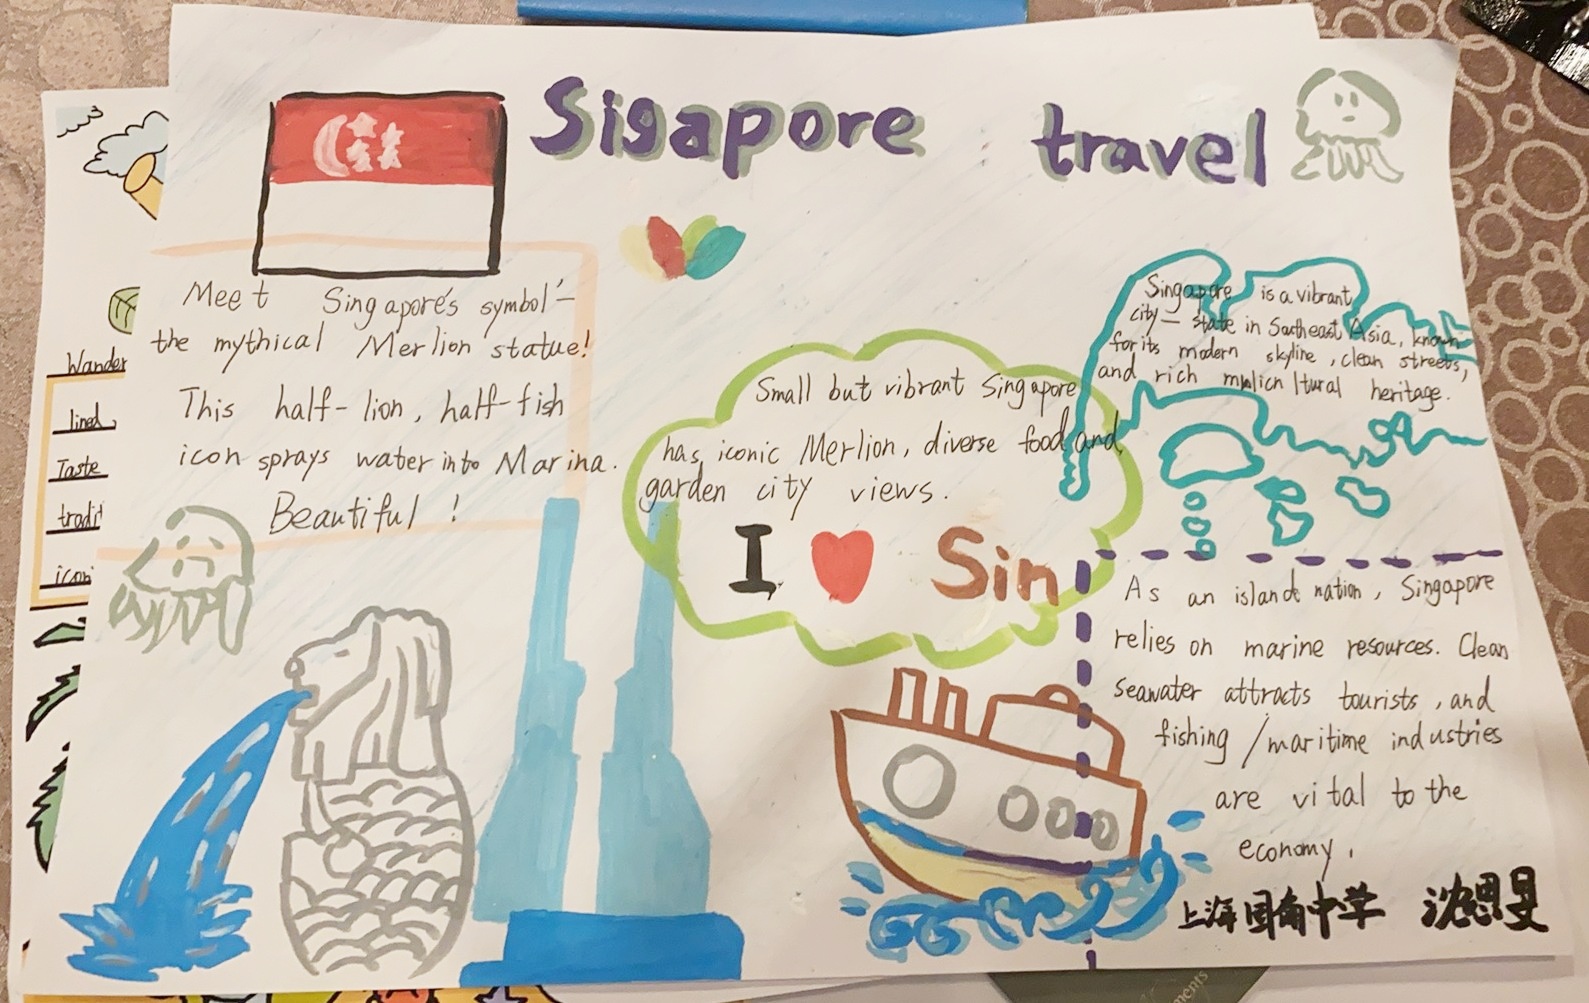 Sigapore travel
Meet Singapore's symbol –
the mythical Merlion statue!
This half-lion, half-fish
icon sprays water into Marina.
Beautiful!
Small but vibrant Singapore
has iconic Merlion, diverse food and
garden city views.
I Sin
Singapore is a vibrant
city – state in Southeast Asia, known
for its modern skyline, clean streets,
and rich heritage.
As an island nation, Singapore
relies on marine resources. Clean
seawater attracts tourists, and
fishing / maritime industries
are vital to the
economy.
上海 中学 沈思旻
Wander
lined,
Taste
tradit
icon
ments